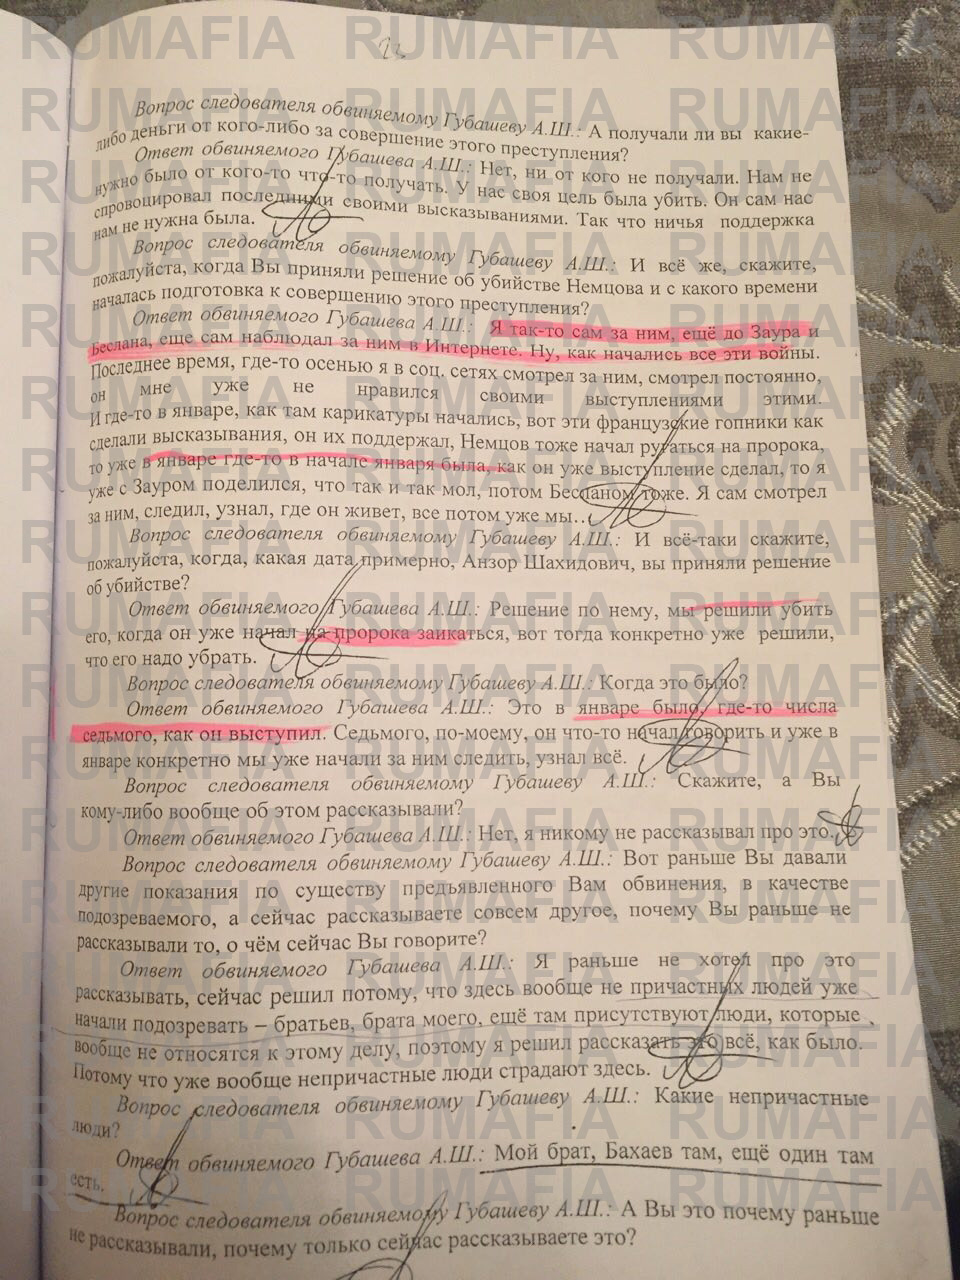 RUMAFIA RUMAFIA RUMAFIA
Вопрос следователя обвиняемому Губашеву А.Ш.: А получали ли вы какие-
либо деньги от кого-либо за совершение этого преступления?
Ответ обвиняемого Губашева А.Ш.: Нет, ни от кого не получали. Нам не
нужно было от кого-то что-то получать. У нас своя цель была убить. Он сам нас
спровоцировал последними своими высказываниями. Так что ничья поддержка
нам не нужна была.
Вопрос следователя обвиняемому Губашеву А.Ш.: И всё же, скажите,
пожалуйста, когда Вы приняли решение об убийстве Немцова и с какого времени
началась подготовка к совершению этого преступления?
Ответ обвиняемого Губашева А.Ш.: Я так-то сам за ним, ещё до Заура и
Беслана, еще сам наблюдал за ним в Интернете. Ну, как начались все эти войны.
Последнее время, где-то осенью я в соц. сетях смотрел за ним, смотрел постоянно,
он мне уже не нравился своими выступлениями этими.
И где-то в январе, как там карикатуры начались, вот эти французские гопники как
сделали высказывания, он их поддержал, Немцов тоже начал ругаться на пророка,
то уже в январе где-то в начале января была, как он уже выступление сделал, то я
уже с Зауром поделился, что так и так мол, потом Бесланом тоже. Я сам смотрел
за ним, следил, узнал, где он живет, все потом уже мы...
Вопрос следователя обвиняемому Губашеву А.Ш.: И всё-таки скажите,
пожалуйста, когда, какая дата примерно, Анзор Шахидович, вы приняли решение
об убийстве?
Ответ обвиняемого Губашева А.Ш.: Решение по нему, мы решили убить
его, когда он уже начал на пророка заикаться, вот тогда конкретно уже решили,
что его надо убрать.
Вопрос следователя обвиняемому Губашеву А.Ш.: Когда это было?
Ответ обвиняемого Губашева А.Ш.: Это в январе было, где-то числа
седьмого, как он выступил. Седьмого, по-моему, он что-то начал говорить и уже в
январе конкретно мы уже начали за ним следить, узнал всё.
Вопрос следователя обвиняемому Губашеву А.Ш.: Скажите, а Вы
кому-либо вообще об этом рассказывали?
Ответ обвиняемого Губашева А.Ш.: Нет, я никому не рассказывал про это.
Вопрос следователя обвиняемому Губашеву А.Ш.: Вот раньше Вы давали
другие показания по существу предъявленного Вам обвинения, в качестве
подозреваемого, а сейчас рассказываете совсем другое, почему Вы раньше не
рассказывали то, о чём сейчас Вы говорите?
Ответ обвиняемого Губашева А.Ш.: Я раньше не хотел про это
рассказывать, сейчас решил потому, что здесь вообще не причастных людей уже
начали подозревать – братьев, брата моего, ещё там присутствуют люди, которые
вообще не относятся к этому делу, поэтому я решил рассказать это всё, как было.
Потому что уже вообще непричастные люди страдают здесь.
Вопрос следователя обвиняемому Губашеву А.Ш.: Какие непричастные
люди?
Ответ обвиняемого Губашева А.Ш.: Мой брат, Бахаев там, ещё один там
есть.
Вопрос следователя обвиняемому Губашеву А.Ш.: А Вы это почему раньше
не рассказывали, почему только сейчас рассказываете это?